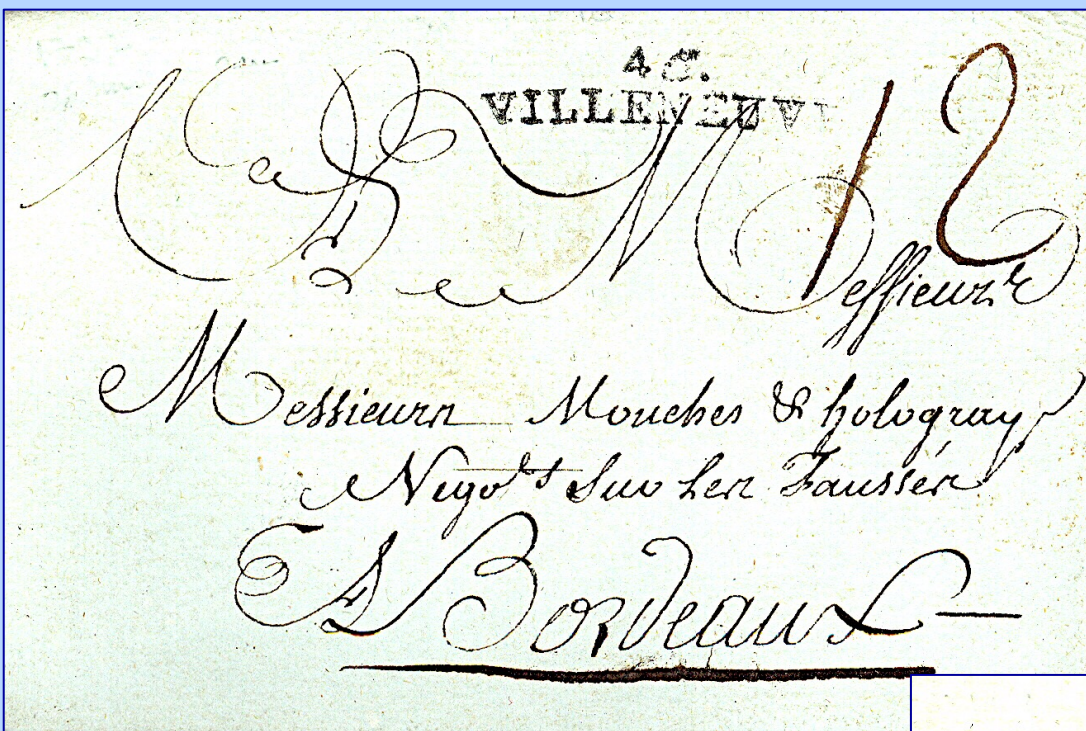 46.
VILLENEUV
12
A Messieurs
Messieurs Mouches & hologray
Negots Sur Les Faussés
A Bordeaux